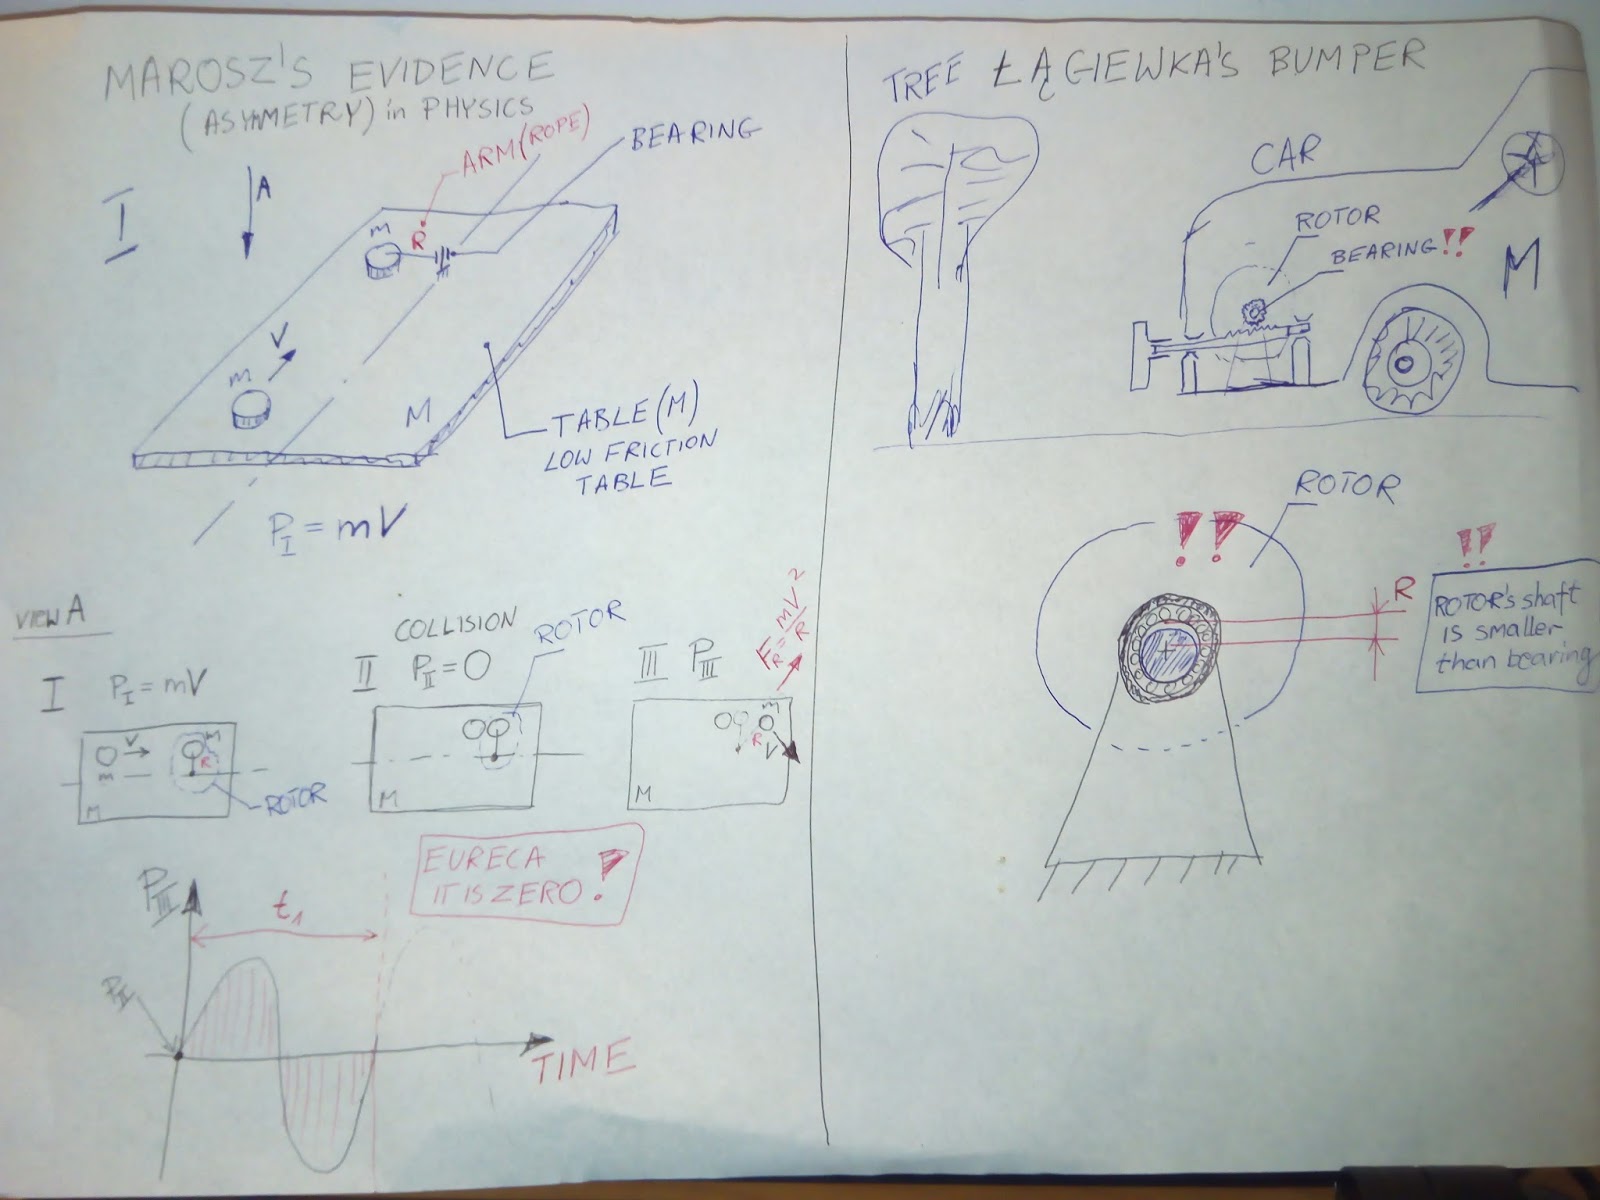 MAROSZ'S EVIDENCE
(ASYMETRY) in PHYSICS
I
A
ARM (ROPE)
BEARING
m
R
V
m
M
TABLE (M)
LOW FRICTION
TABLE
P_I = mV
VIEW A
I P_I = mV
V
m
m
R
M
ROTOR
COLLISION
II P_II = 0
ROTOR
M
III P_III
F_R = mV²/R
m
R
V
M
EURECA
IT IS ZERO !
P_III
t₁
P_II
TIME
TREE ŁĄGIEWKA'S BUMPER
CAR
ROTOR
BEARING !!
M
ROTOR
!!
R
!!
ROTOR's shaft
is smaller
than bearing